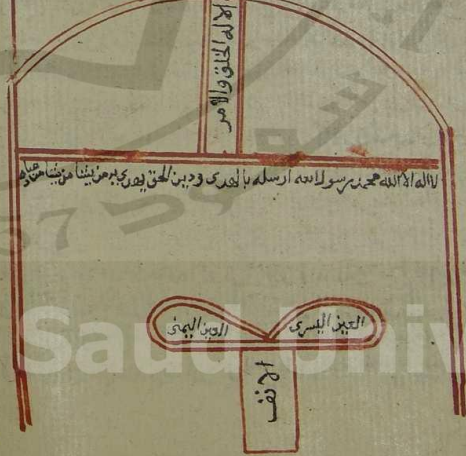 الا له الخلق والامر
لااله الا الله محمد رسول الله ارسله بالهدى ودين الحق يهدى به من يشا من يشا من عباده
العين اليسرى
العين اليمنى
الانف
Saud Univ